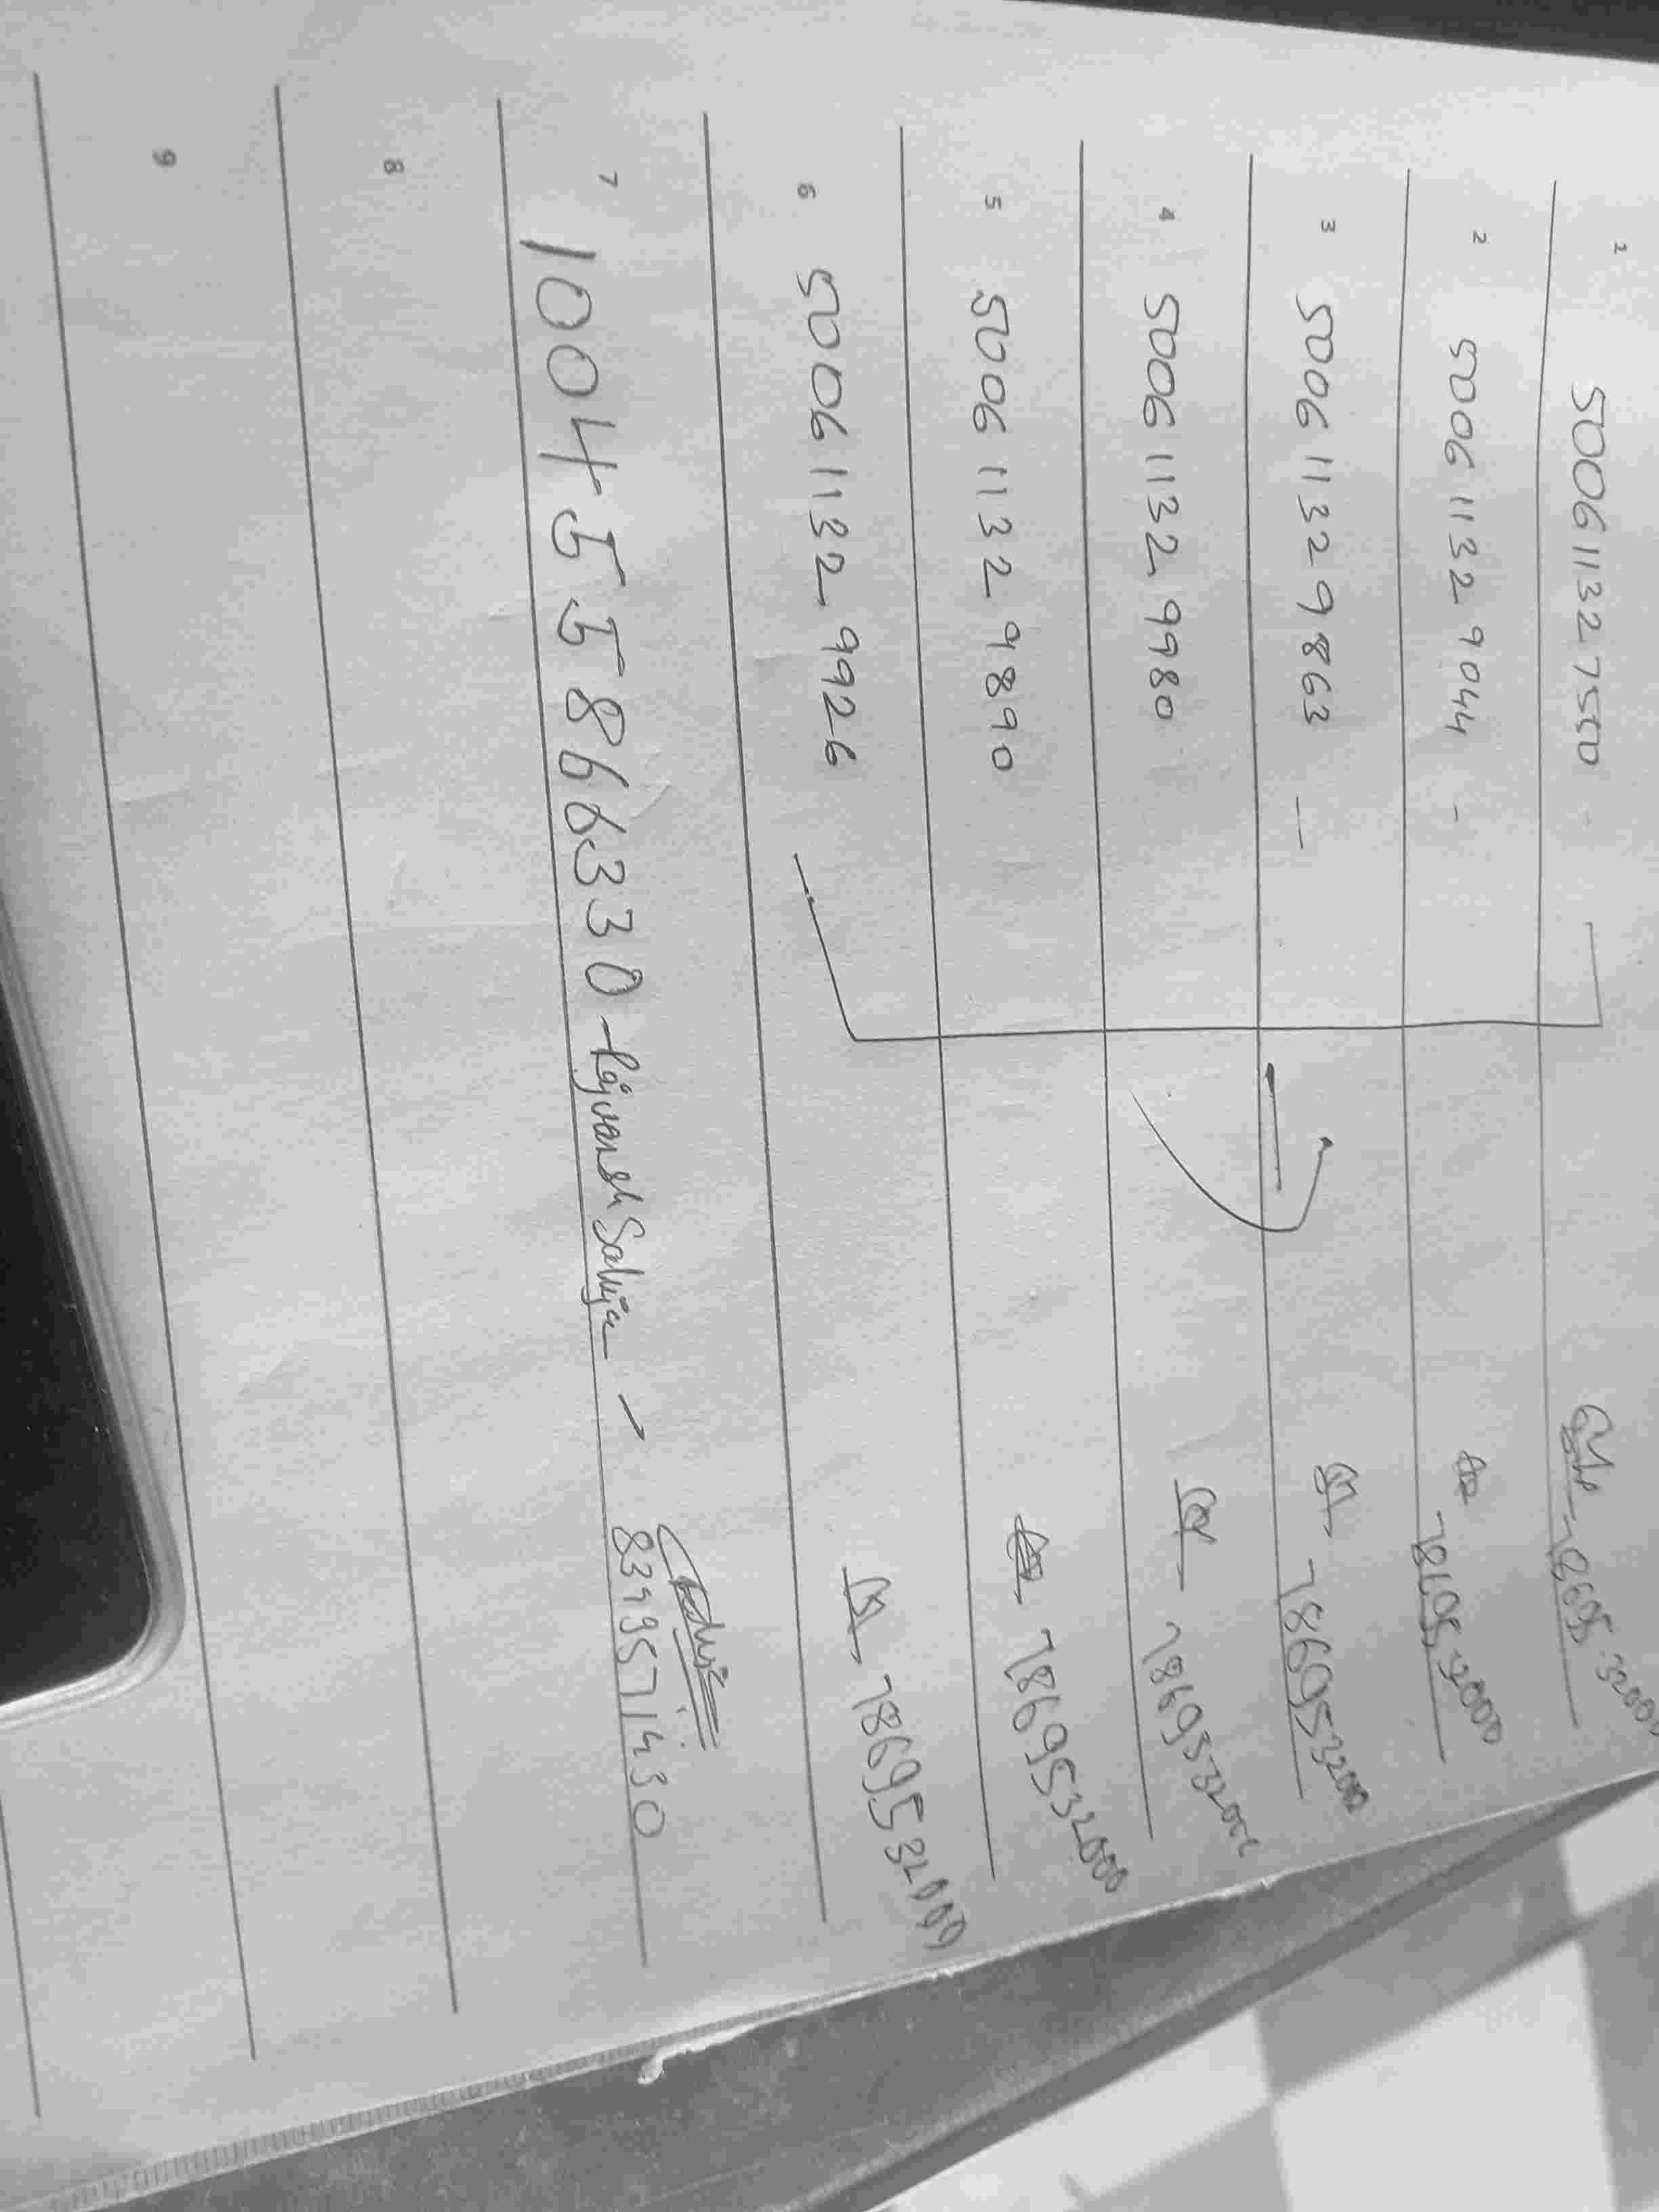 1 500611327550 - 7869532000
2 500611329044 - 7869532000
3 500611329863 - 7869532000
4 500611329980 7869532000
5 500611329890 7869532000
6 500611329926 7869532000
7 100455866330 - Rajvansh Saluja - 8399571430
8
9